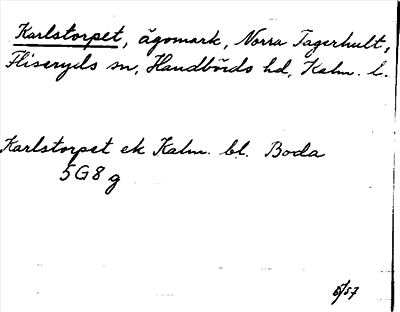 Karlstorpet, ägomark, Norra Tagerhult,
Fliseryds sn, Handbörds hd, Kalm. l.
Karlstorpet ek Kalm. bl. Boda
5G8g
8/57